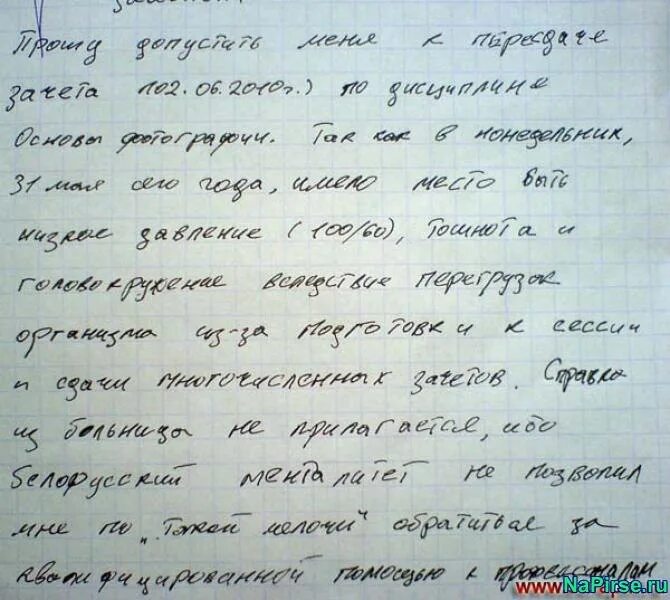 Прошу допустить меня к пересдаче
зачета (02.06.2010г.) по дисциплине
Основы фотографии. Так как в понедельник,
31 мая сего года, имело место быть
низкое давление (100/60), тошнота и
головокружение вследствие перегрузок
организма из-за подготовки к сессии
и сдачи многочисленных зачетов. Справка
из больницы не прилагается, ибо
белорусский менталитет не позволил
мне по "такой мелочи" обратиться за
квалифицированной помощью к
www.NaPirse.ru